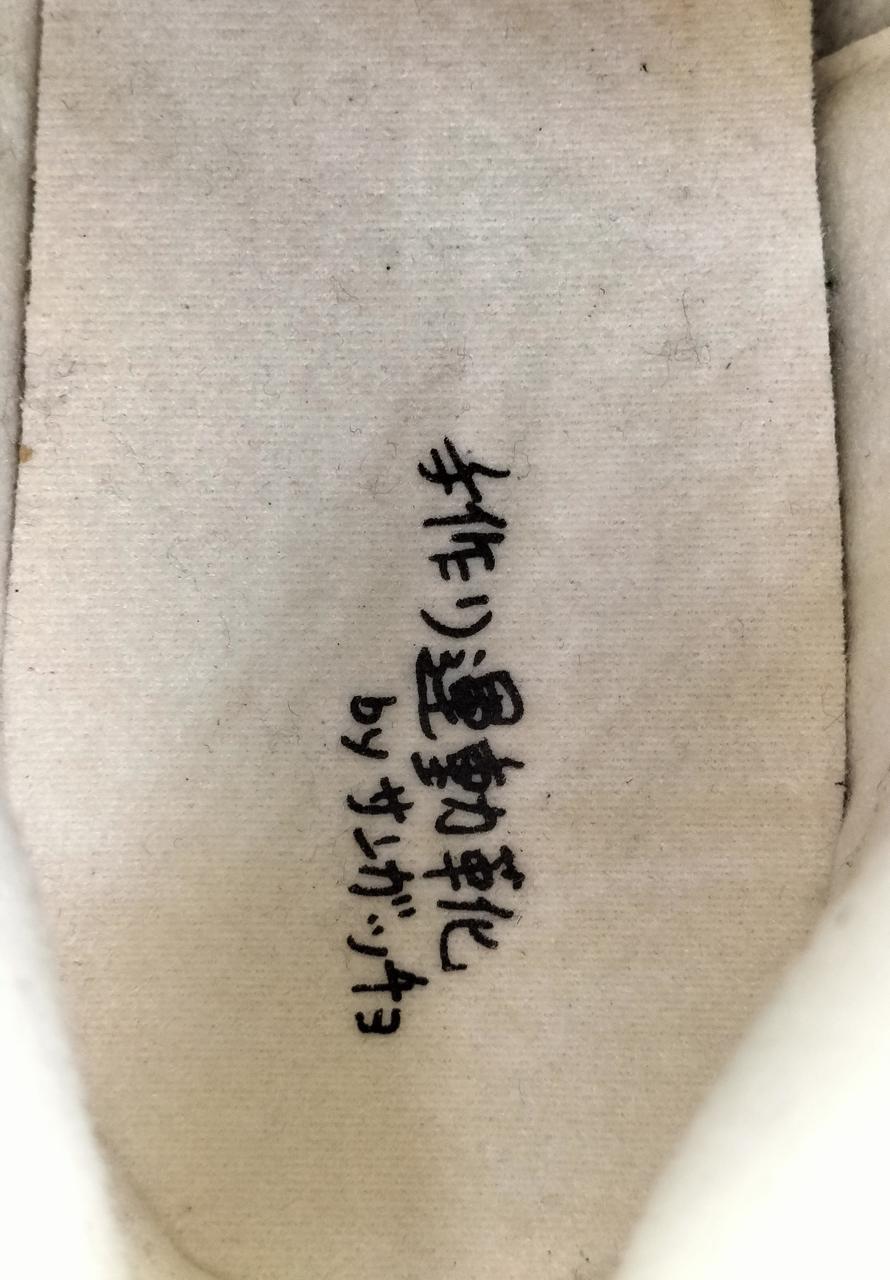 手作り運動靴
by サンガッチョ